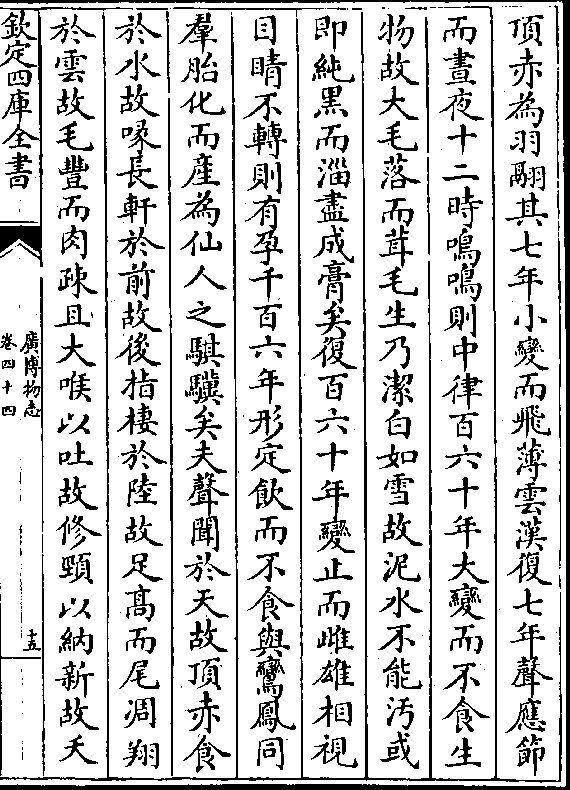 頂赤為羽翮其七年小變而飛薄雲漢復七年聲應節
而晝夜十二時鳴鳴則中律百六十年大變而不食生
物故大毛落而茸毛生乃潔白如雪故泥水不能汚或
即純黑而淄盡成膏矣復百六十年變止而雌雄相視
目睛不轉則有孕千百六年形定飲而不食與鸞鳳同
羣胎化而産為仙人之騏驥矣夫聲聞於天故頂赤食
於水故喙長軒於前故後指棲於陸故足高而尾凋翔
於雲故毛豐而肉疎且大喉以吐故修頸以納新故天
欽定四庫全書
廣博物志
卷四十四
十五